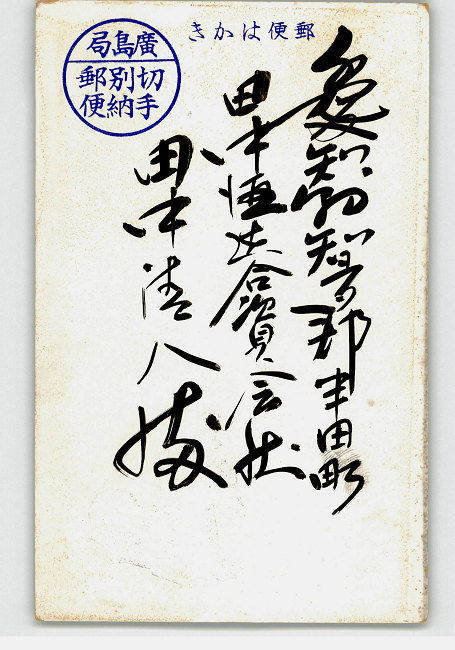 郵便はかき
廣島局
切手
別納
郵便
愛知縣知多郡半田町
田中合資会社
田中清八様